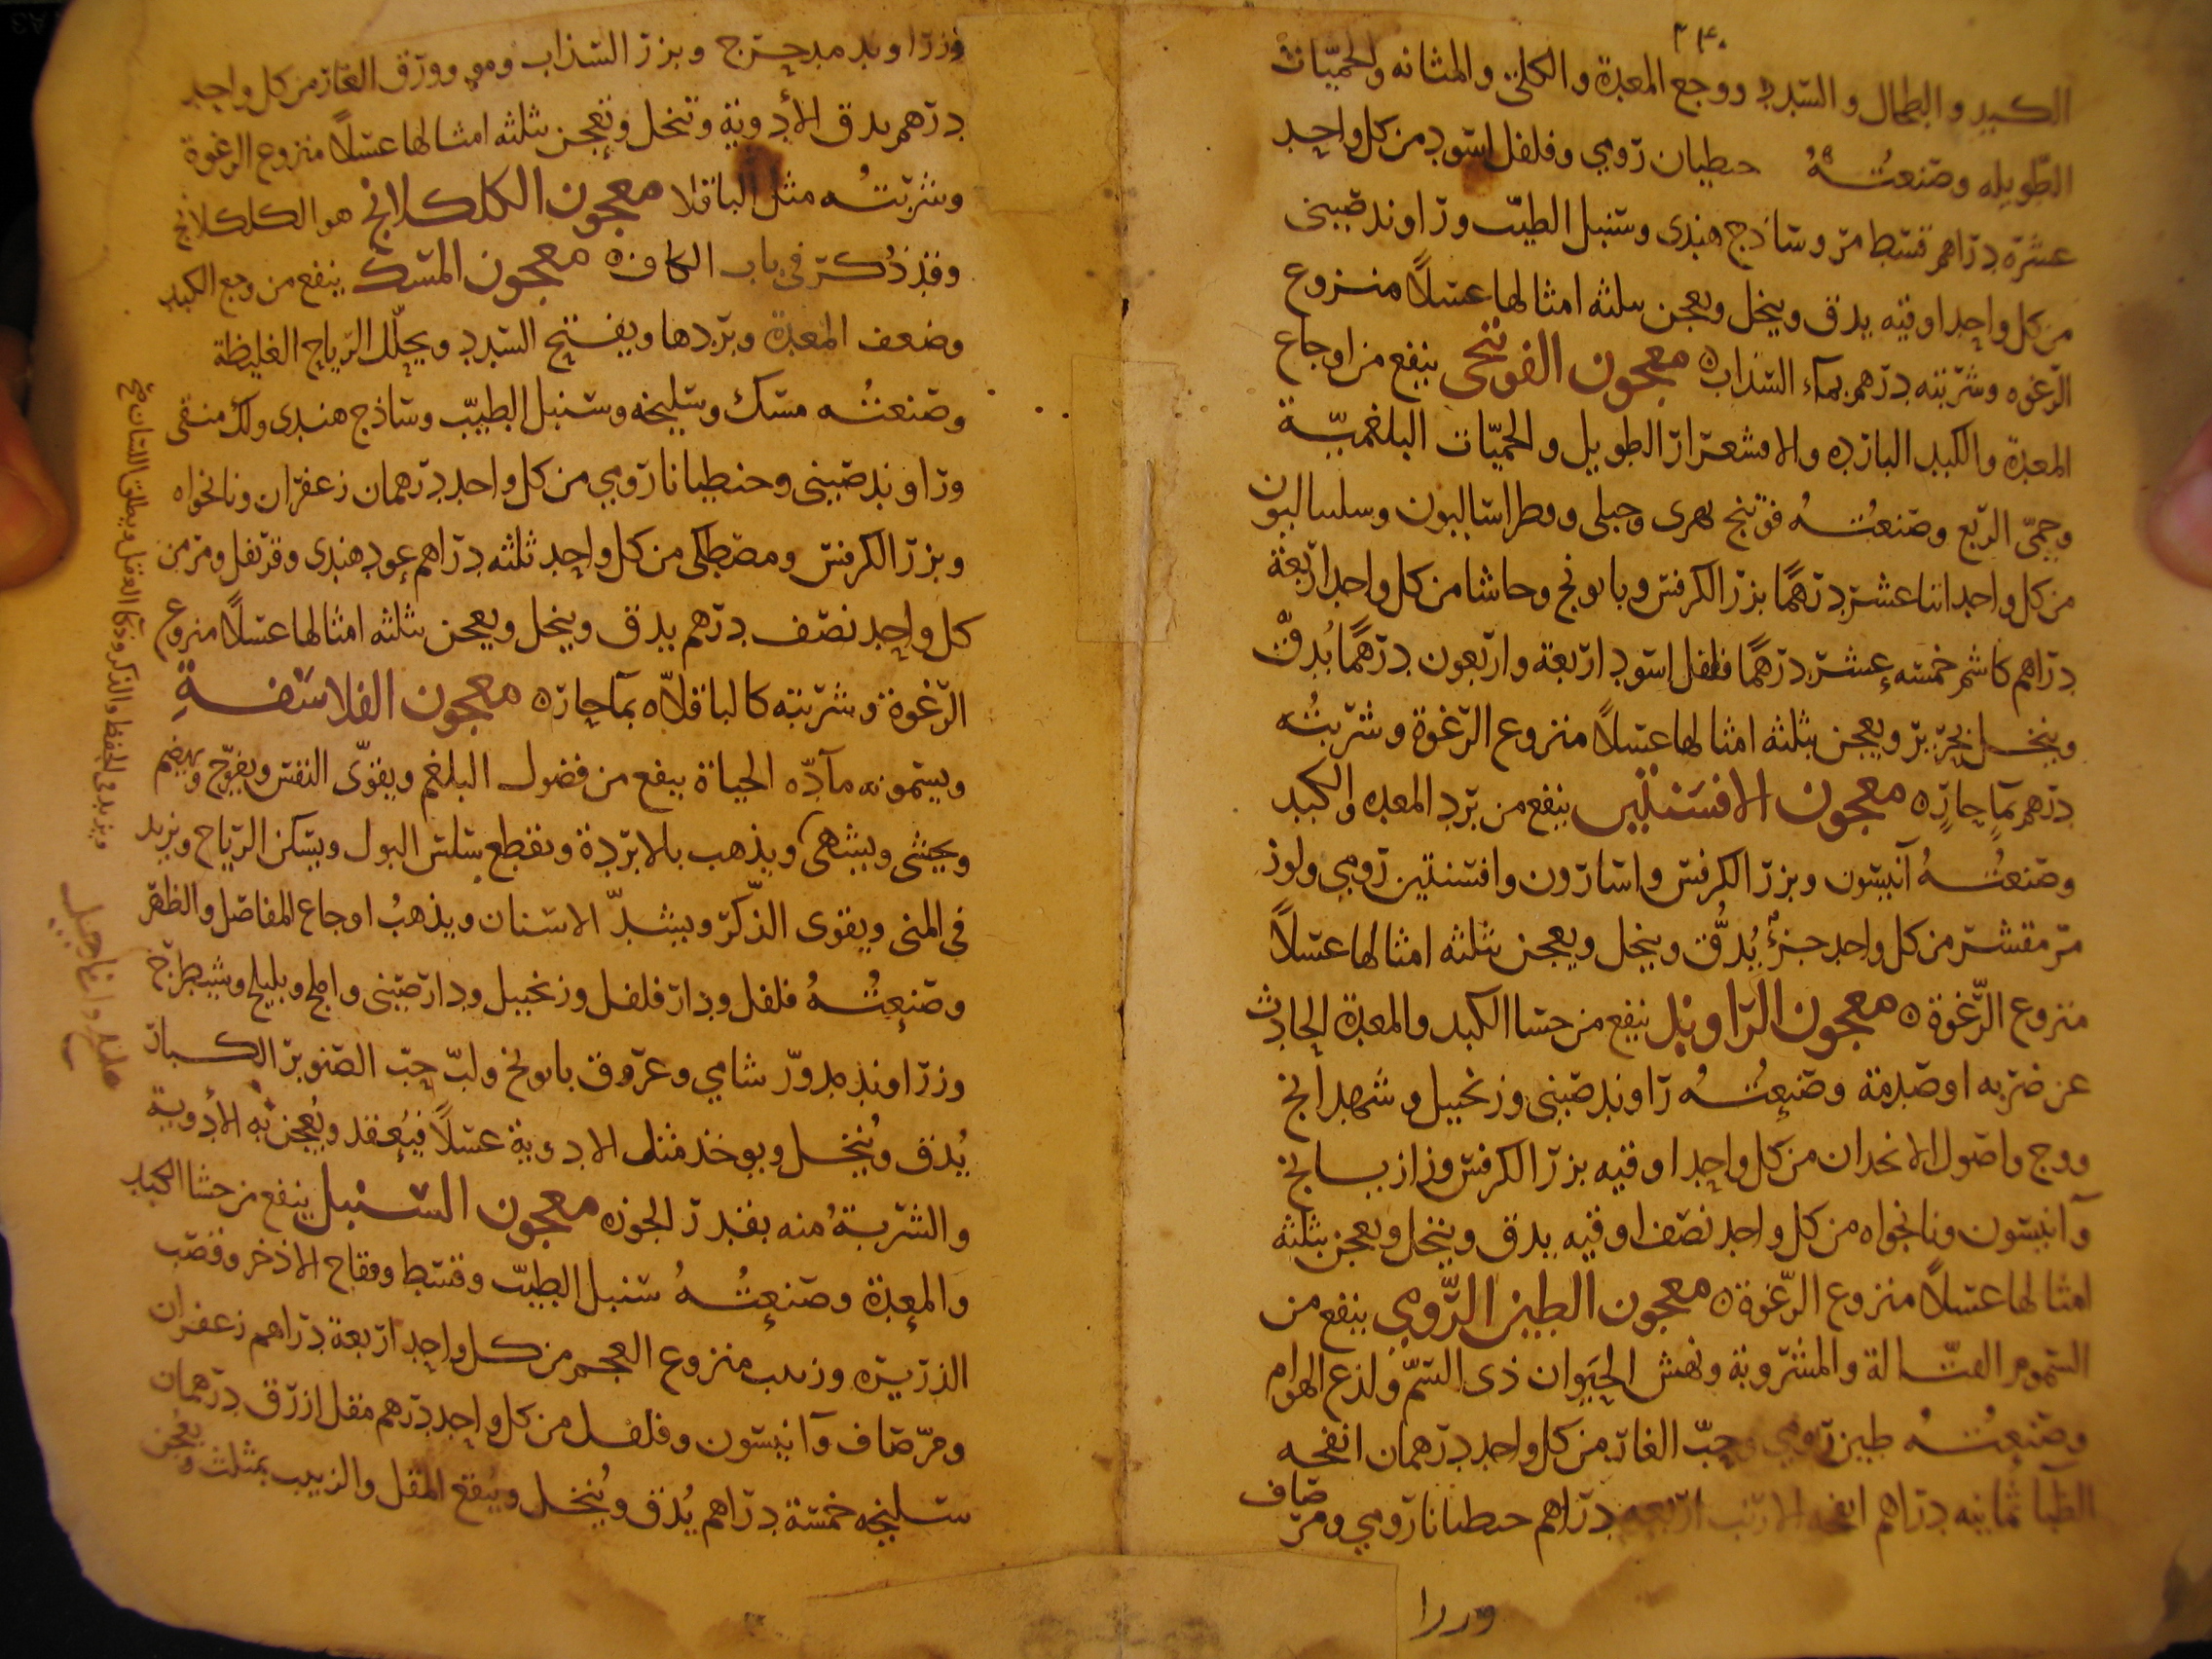 ٢٤٠
الكبد والطحال والسدد ووجع المعدة والكلى والمثانه والحميات
الطويله وصنعته حنطيان رومي وفلفل اسود من كل واحد
عشره دراهم قسط مر وساذج هندى وسنبل الطيب وراوند صينى
من كل واحد اوقيه يدق وينخل ويعجن بثلثه امثالها عسلاً منزوع
الرغوه وشربته درهم بماء السذاب معجون الفوتنجى ينفع من اوجاع
المعدة والكبد البارده والاقشعرار الطويل والحميات البلغمية
وحمى الربع وصنعته فوتنج نهرى وجبلى وفطراساليون وسيساليون
من كل واحد اثنا عشر درهمًا بزر الكرفس وبابونج وحاشا من كل واحد اربعة
دراهم كاشم خمسه عشر درهمًا فلفل اسود اربعة واربعون درهمًا يُدقّ
وينخل بحرير ويعجن بثلثه امثالها عسلاً منزوع الرغوة وشربته
درهم بماء حاره معجون الافسنتين ينفع من برد المعده والكبد
وصنعته آنيسون وبزر الكرفس واسارون وافسنتين رومي ولوز
مر مقشر من كل واحد جزء يُدق وينخل ويعجن بثلثه امثالها عسلاً
منزوع الرّغوة معجون الراوند ينفع من حسا الكبد والمعدة الحادث
عن ضربه او صدمة وصنعته راوند صينى وزنجبيل وشهدانج
ووج واصول الانجدان من كل واحد اوقيه بزر الكرفس ورازيانج
وآنيسون ونانخواه من كل واحد نصف اوقيه يدق وينخل ويعجن بثلثه
امثالها عسلاً منزوع الرّغوة معجون الطين الرّومي ينفع من
السموم القتالة والمشروبة ونهش الحيوان ذى السمّ ولذع الهوام
وصنعته طين رومي وحبّ الغار من كل واحد درهمان انفحه
الظبا ثمانيه دراهم انفحه الارنب اربعه دراهم حنطيانا رومي ومرّ صاف
وزرا
وزراوند مدحرج وبزر السذاب ومو وورق الغار من كل واحد
درهم يدق الأدوية وتنخل وتعجن بثلثه امثالها عسلاً منزوع الرغوة
وشربته مثل الباقلا معجون الكلكلانج هو الكلكلانج
وقد ذُكر فى باب الكاف معجون المسك ينفع من وجع الكبد
وضعف المعدة وبردها ويفتح السدد ويحلّل الرياح الغليظة
وصنعته مسك وسليخه وسنبل الطيب وساذج هندى ولك منقى
وراوند صينى وحنطيانا رومي من كل واحد درهمان زعفران ونانخواه
وبزر الكرفس ومصطكى من كل واحد ثلثه دراهم عود هندى وقرنفل ومر من
كل واحد نصف درهم يدق وينخل ويعجن بثلثه امثالها عسلاً منزوع
الرّغوة وشربته كالباقلاه بماء حاره معجون الفلاسفة
ويسمونه مآدّه الحياة ينفع من فضول البلغم ويقوّى النفس ويفرّح ويهضم
ويحشى ويشهى ويذهب بالابردة ويقطع سلس البول ويسكن الرياح ويزيد
فى المنى ويقوى الذّكر ويشدّ الاسنان ويذهبُ اوجاع المفاصل والظهر
وصنعته فلفل ودار فلفل وزنجبيل ودار صينى واملج وبليلج وشيطرج
وزراوند مدوّر شامي وعروق بابونج ولبّ حبّ الصنوبر الكبار
يُدق ويُنخل ويوخذ مثل الادوية عسلاً فيُعقد ويُعجن به الأدوية
والشربةُ منه بقدر الجوزه معجون السنبل ينفع من حسا الكبد
والمعدة وصنعته سنبل الطيب وقسط وفقاح الاذخر وقصب
الذريره وزبيب منزوع العجم من كل واحد اربعة دراهم زعفران
ومرّ صاف وآنيسون وفلفل من كل واحد درهم مقل ازرق درهمان
سليخه خمسة دراهم يُدق ويُنخل وينقع المقل والزبيب بمثلث ويعجن
ويزيد فى الحفظ والذكر وذكا العقل ويطلق اللسان صح